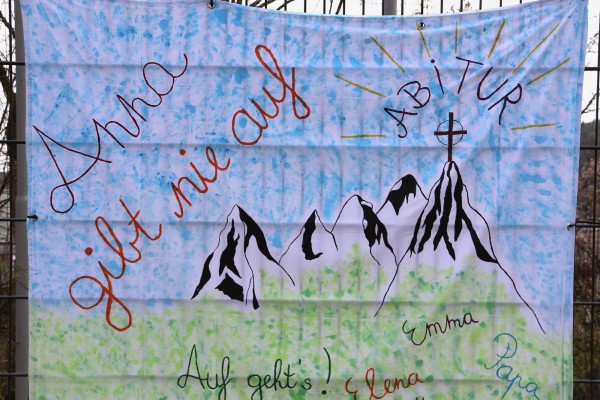 Anna
gibt nie auf
ABiTUR
Emma
Papa
Auf geht's!
Elena